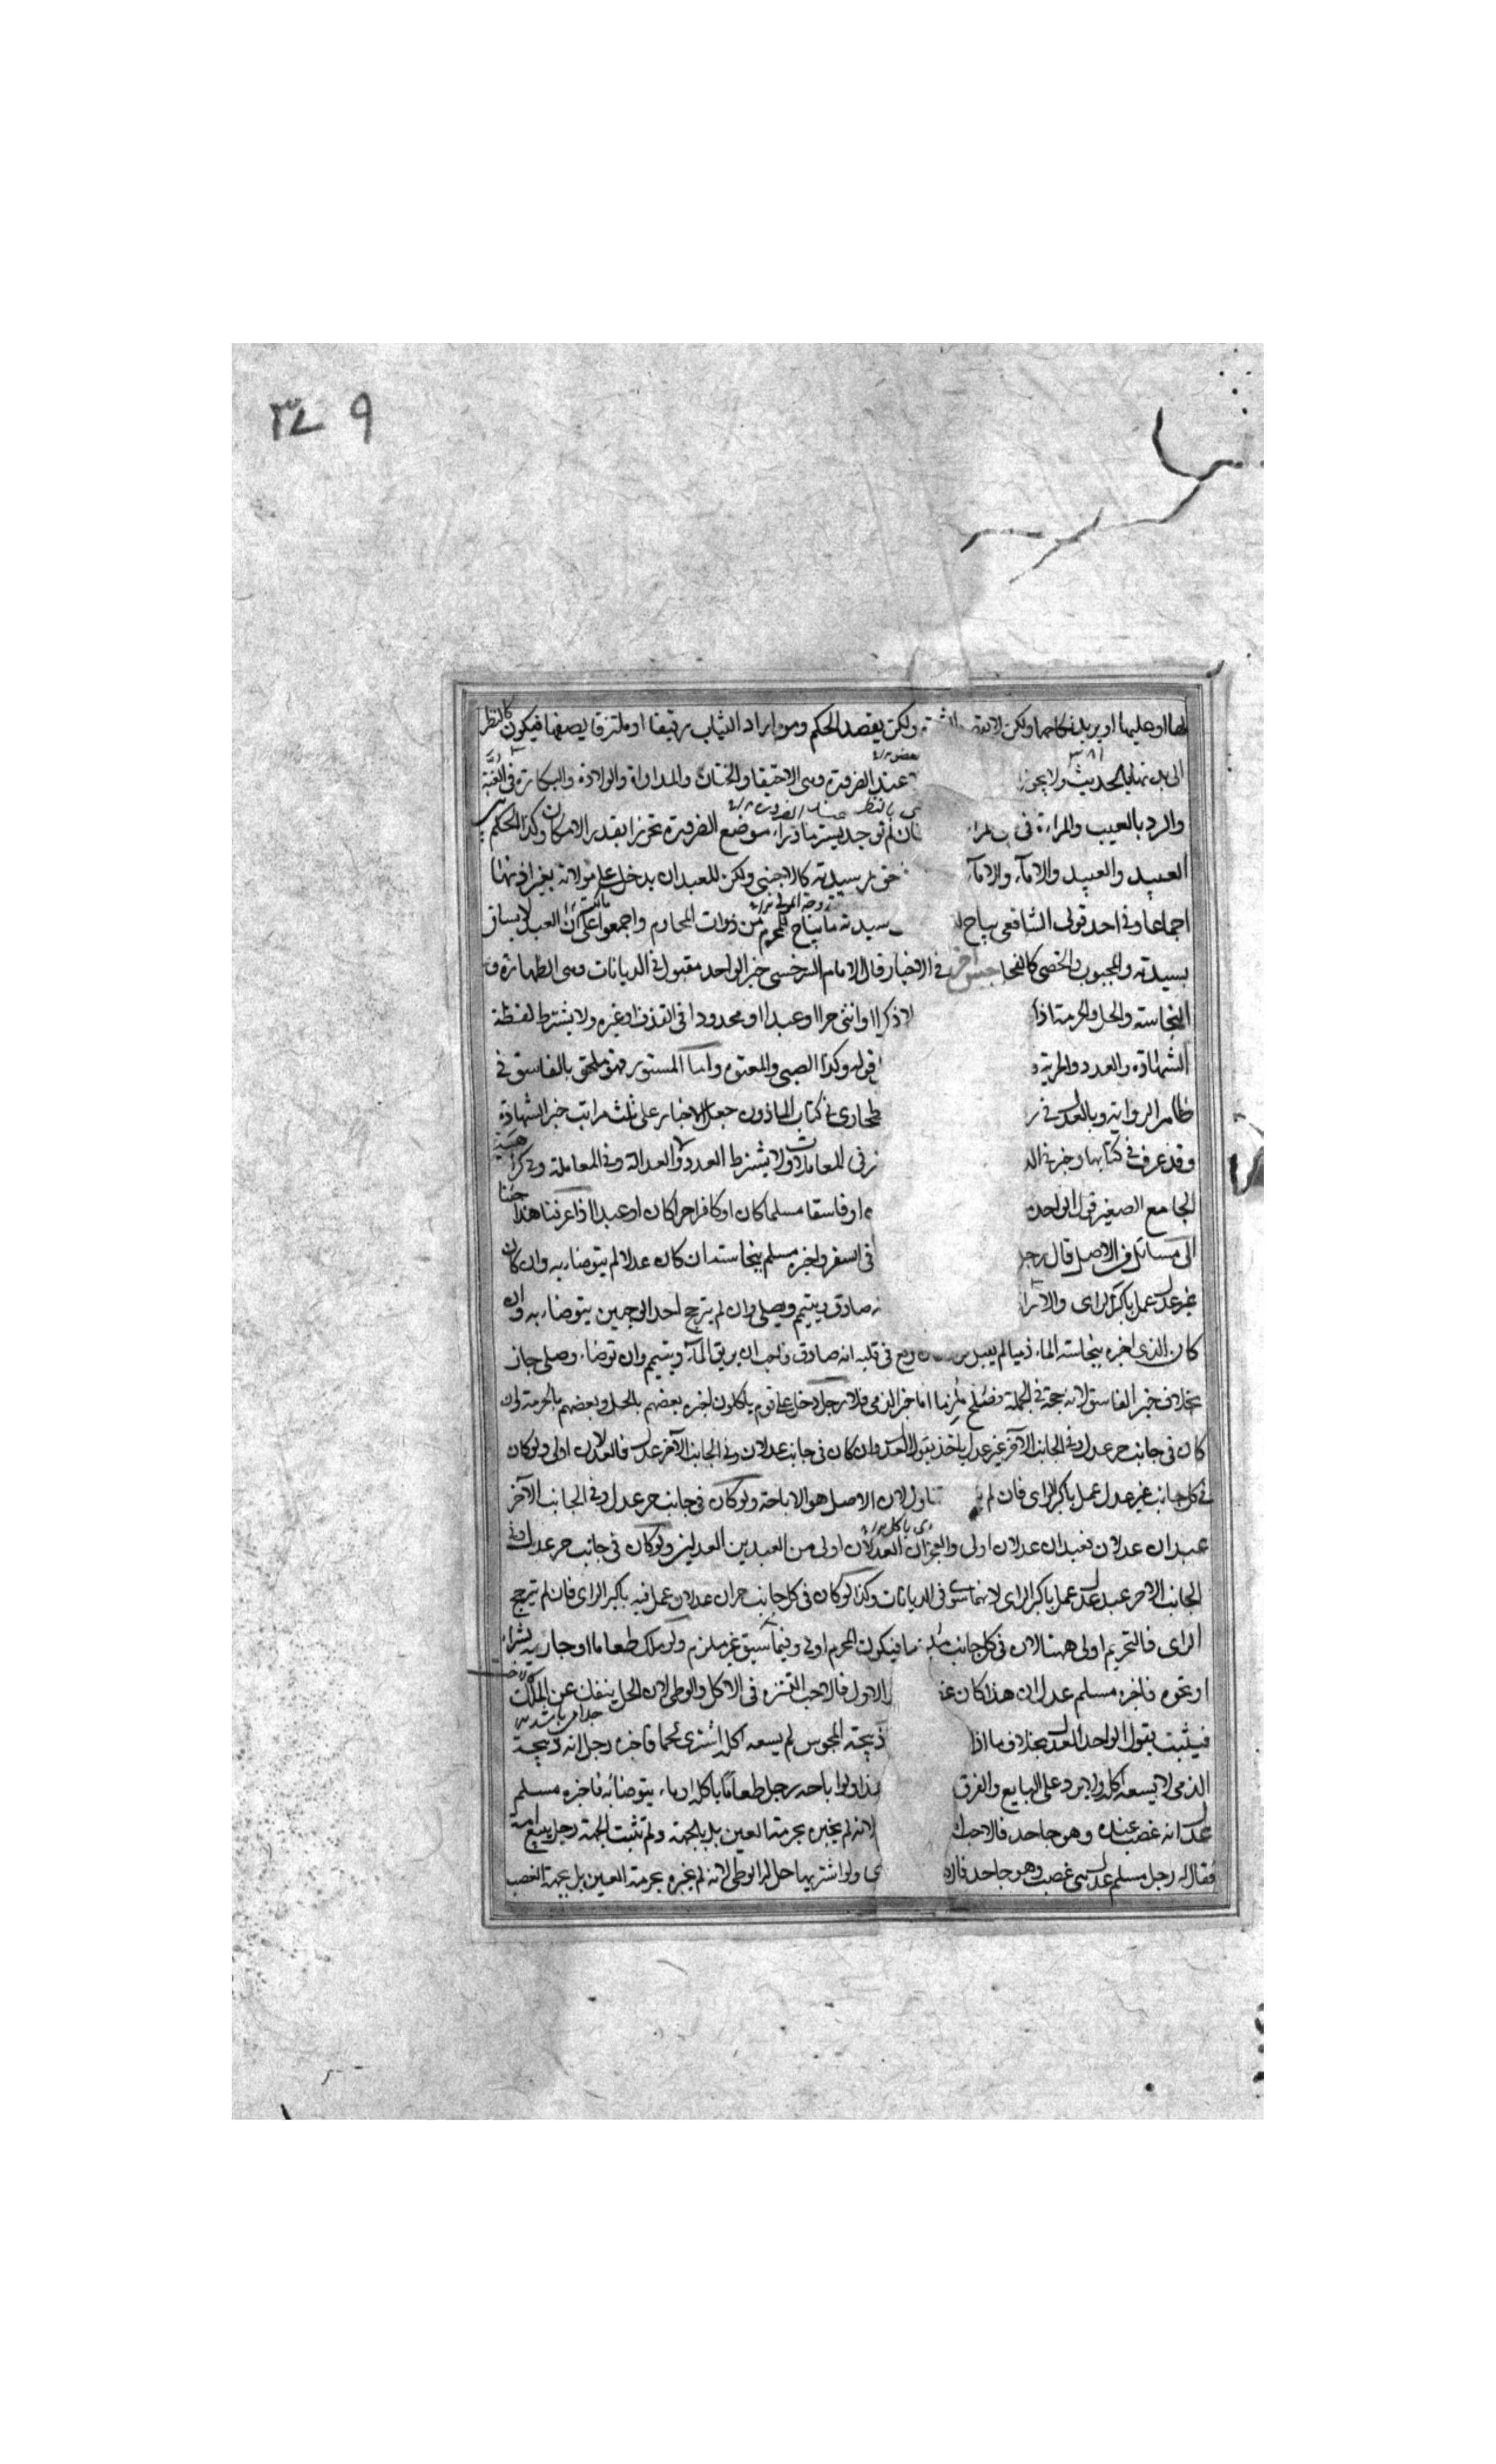 ٣٤٩
لها او عليها او يريد نكاحها ولكن لا يقصد ولكن يقصد الحكم ومن اراد الثياب رقيقا او ملتزقا يصفها فيكون كالنظر
الى بدنها بالحديث ولا يجوز عند الضرورة وهى الاحتقان والختان والمداواة والولادة والبكارة فى العنة
والرد بالعيب والمراءة فى توجد يستر ما وراء موضع الضرورة تحرزا بقدر الامكان وكذا الحكم
العبيد والعبيد والاماء والاماء حق سيدته كالاجنبى ولكن للعبد ان يدخل على مولاته بغير اذنها
اجماعا وفى احد قولى الشافعى يباح سيدته ما يباح للمحرم من ذوات المحارم واجمعوا على ان العبد لا يسافر
بسيدته والمجبوب والخصى كالفحل جنس آخر فى الاخبار قال الامام السرخسى خبر الواحد مقبول فى الديانات وهى الطهارة و
النجاسة والحل والحرمة اذا ذكرا او انثى حرا او عبدا او محدودا فى القذف او غيره ولا يشترط لفظة
الشهادة والعدد والحرية و قوله وكذا الصبى والمعتوه واما المستور فهو ملحق بالفاسق فى
ظاهر الرواية وبالعدل فى طحاوى فى كتاب الماذون جعل الاخبار على ثلث مراتب خبر الشهادة
وقد عرف فى كتابها وخبر فى المعاملات ولا يشترط العدد ولا العدالة وفى المعاملة وفى كراهية
الجامع الصغير قول الواحد او فاسقا مسلما كان او كافرا حرا كان او عبدا اذا عرفنا هذا جئنا
الى مسائل فى الاصل قال رجل فى السفر واخبره مسلم بنجاسته ان كان عدلا لم يتوضا به وان كان
غير عدل عمل باكبر الراى صادق يتيمم ويصلى وان لم يترجح احد الوجهين يتوضا به وان
كان الذى اخبره بنجاسة الماء ذميا لم يقبل وقع فى قلبه انه صادق فاحب ان يريق الماء ويتيمم وان توضاء وصلى جاز
بخلاف خبر الفاسق لانه حجة فى الجملة فصلح ملزما اما خبر الذمى فلا رجل دخل على قوم ياكلون اخبره بعضهم بالحل وبعضهم بالحرمة ان
كان فى جانب حر عدل وفى الجانب الآخر غير عدل ياخذ بقول العدل وان كان فى جانب عدلان وفى الجانب الآخر عدل فالعدلان اولى ولو كان
فى كل جانب غير عدل عمل باكبر الراى فان لم تناول لان الاصل هو الاباحة ولو كان فى جانب حر عدل وفى الجانب الآخر
عبدان عدلان فعبدان عدلان اولى والحران العدلان اولى من العبدين العدلين ولو كان فى جانب حر عدل وفى
الجانب الاخر عبد عدل عمل باكبر الراى لانهما سوى فى الديانات وكذا لو كان فى كل جانب حران عدلان عمل فيه باكبر الراى فان لم يترجح
الراى فالتحريم اولى ههنا لان فى كل جانب ملزما فيكون المحرم اولى وفيما سبق غير ملزم ولو ملك طعاما او جارية بشراء
او نحوه فاخبره مسلم عدل ان هذا كان الاول فالاحب التنزه فى الاكل والوطى لان الحل ينفك عن الملك
فيثبت بقول الواحد العدل بخلاف ما اذا ذبيحة المجوس لم يسعه اكله اشترى لحما فاخبره رجل انه ذبيحة
الذمى لا يسعه اكله ولا يرد على البايع والفرق هذا ولو اباحه رجل طعاما ياكله او ماء يتوضا به فاخبره مسلم
عدل انه غصب عنده وهو جاحد فالاحب لانه لم يخبره بحرمة العين بل بالجهة ولم تثبت الجهة رجل يبيع امة
فقال له رجل مسلم عدل هى غصب وهو جاحد فاراد ولو اشتريها حل له الوطى لانه لم يخبره بحرمة العين بل بجهة الغصب